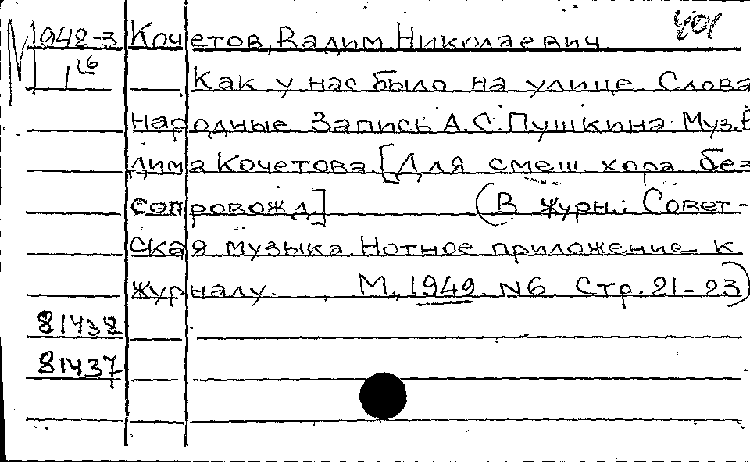 401
М 948-3 Кочетов, Вадим Николаевич
1 16 Как у нас было на улице. Слова
народные. Запись А.С. Пушкина. Муз. В
дима Кочетова [Для смеш. хора без
сопровожд.] (В журн.: Совет-
ская музыка. Нотное приложение к
журналу. М., 1949. N6 Стр. 21-23)
81438
81437